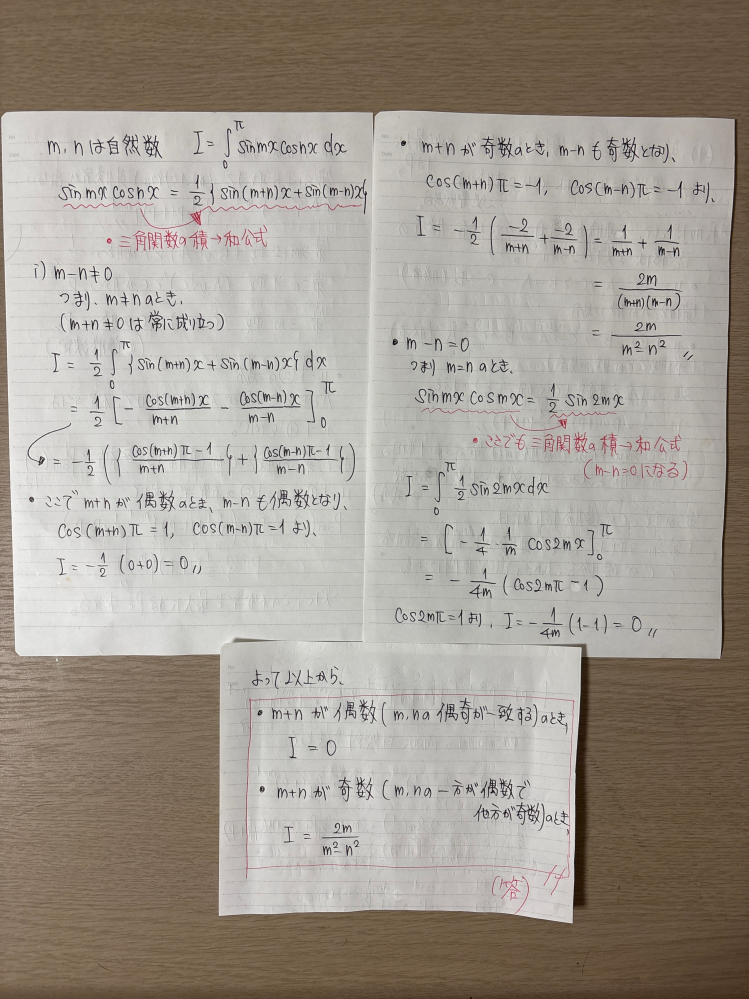 m, n は自然数 I = ∫₀^π sin mx cos nx dx
sin mx cos nx = 1/2 { sin(m+n)x + sin(m-n)x }
• 三角関数の積→和公式
i) m-n≠0
つまり、m≠n のとき、
(m+n≠0 は常に成り立つ)
I = 1/2 ∫₀^π { sin(m+n)x + sin(m-n)x } dx
= 1/2 [ - cos(m+n)x/(m+n) - cos(m-n)x/(m-n) ]₀^π
= -1/2 ( { (cos(m+n)π-1)/(m+n) } + { (cos(m-n)π-1)/(m-n) } )
• ここで m+n が 偶数のとき、m-n も偶数となり、
cos(m+n)π = 1, cos(m-n)π = 1 より、
I = -1/2 (0+0) = 0 〃
• m+n が 奇数のとき、m-n も 奇数となり、
cos(m+n)π = -1, cos(m-n)π = -1 より、
I = -1/2 ( -2/(m+n) + -2/(m-n) ) = 1/(m+n) + 1/(m-n)
= 2m/((m+n)(m-n))
= 2m/(m²-n²) 〃
• m-n=0
つまり m=n のとき、
sin mx cos mx = 1/2 sin 2mx
• ここでも 三角関数の積→和公式
(m-n=0 になる)
I = ∫₀^π 1/2 sin 2mx dx
= [ -1/4 · 1/m cos 2mx ]₀^π
= - 1/4m ( cos 2mπ - 1 )
cos 2mπ = 1 より、I = - 1/4m (1-1) = 0 〃
よって以上から、
• m+n が 偶数 (m, n の 偶奇が一致する) のとき、
I = 0
• m+n が 奇数 (m, n の 一方が偶数で
他方が奇数) のとき、
I = 2m/(m²-n²)
(答)